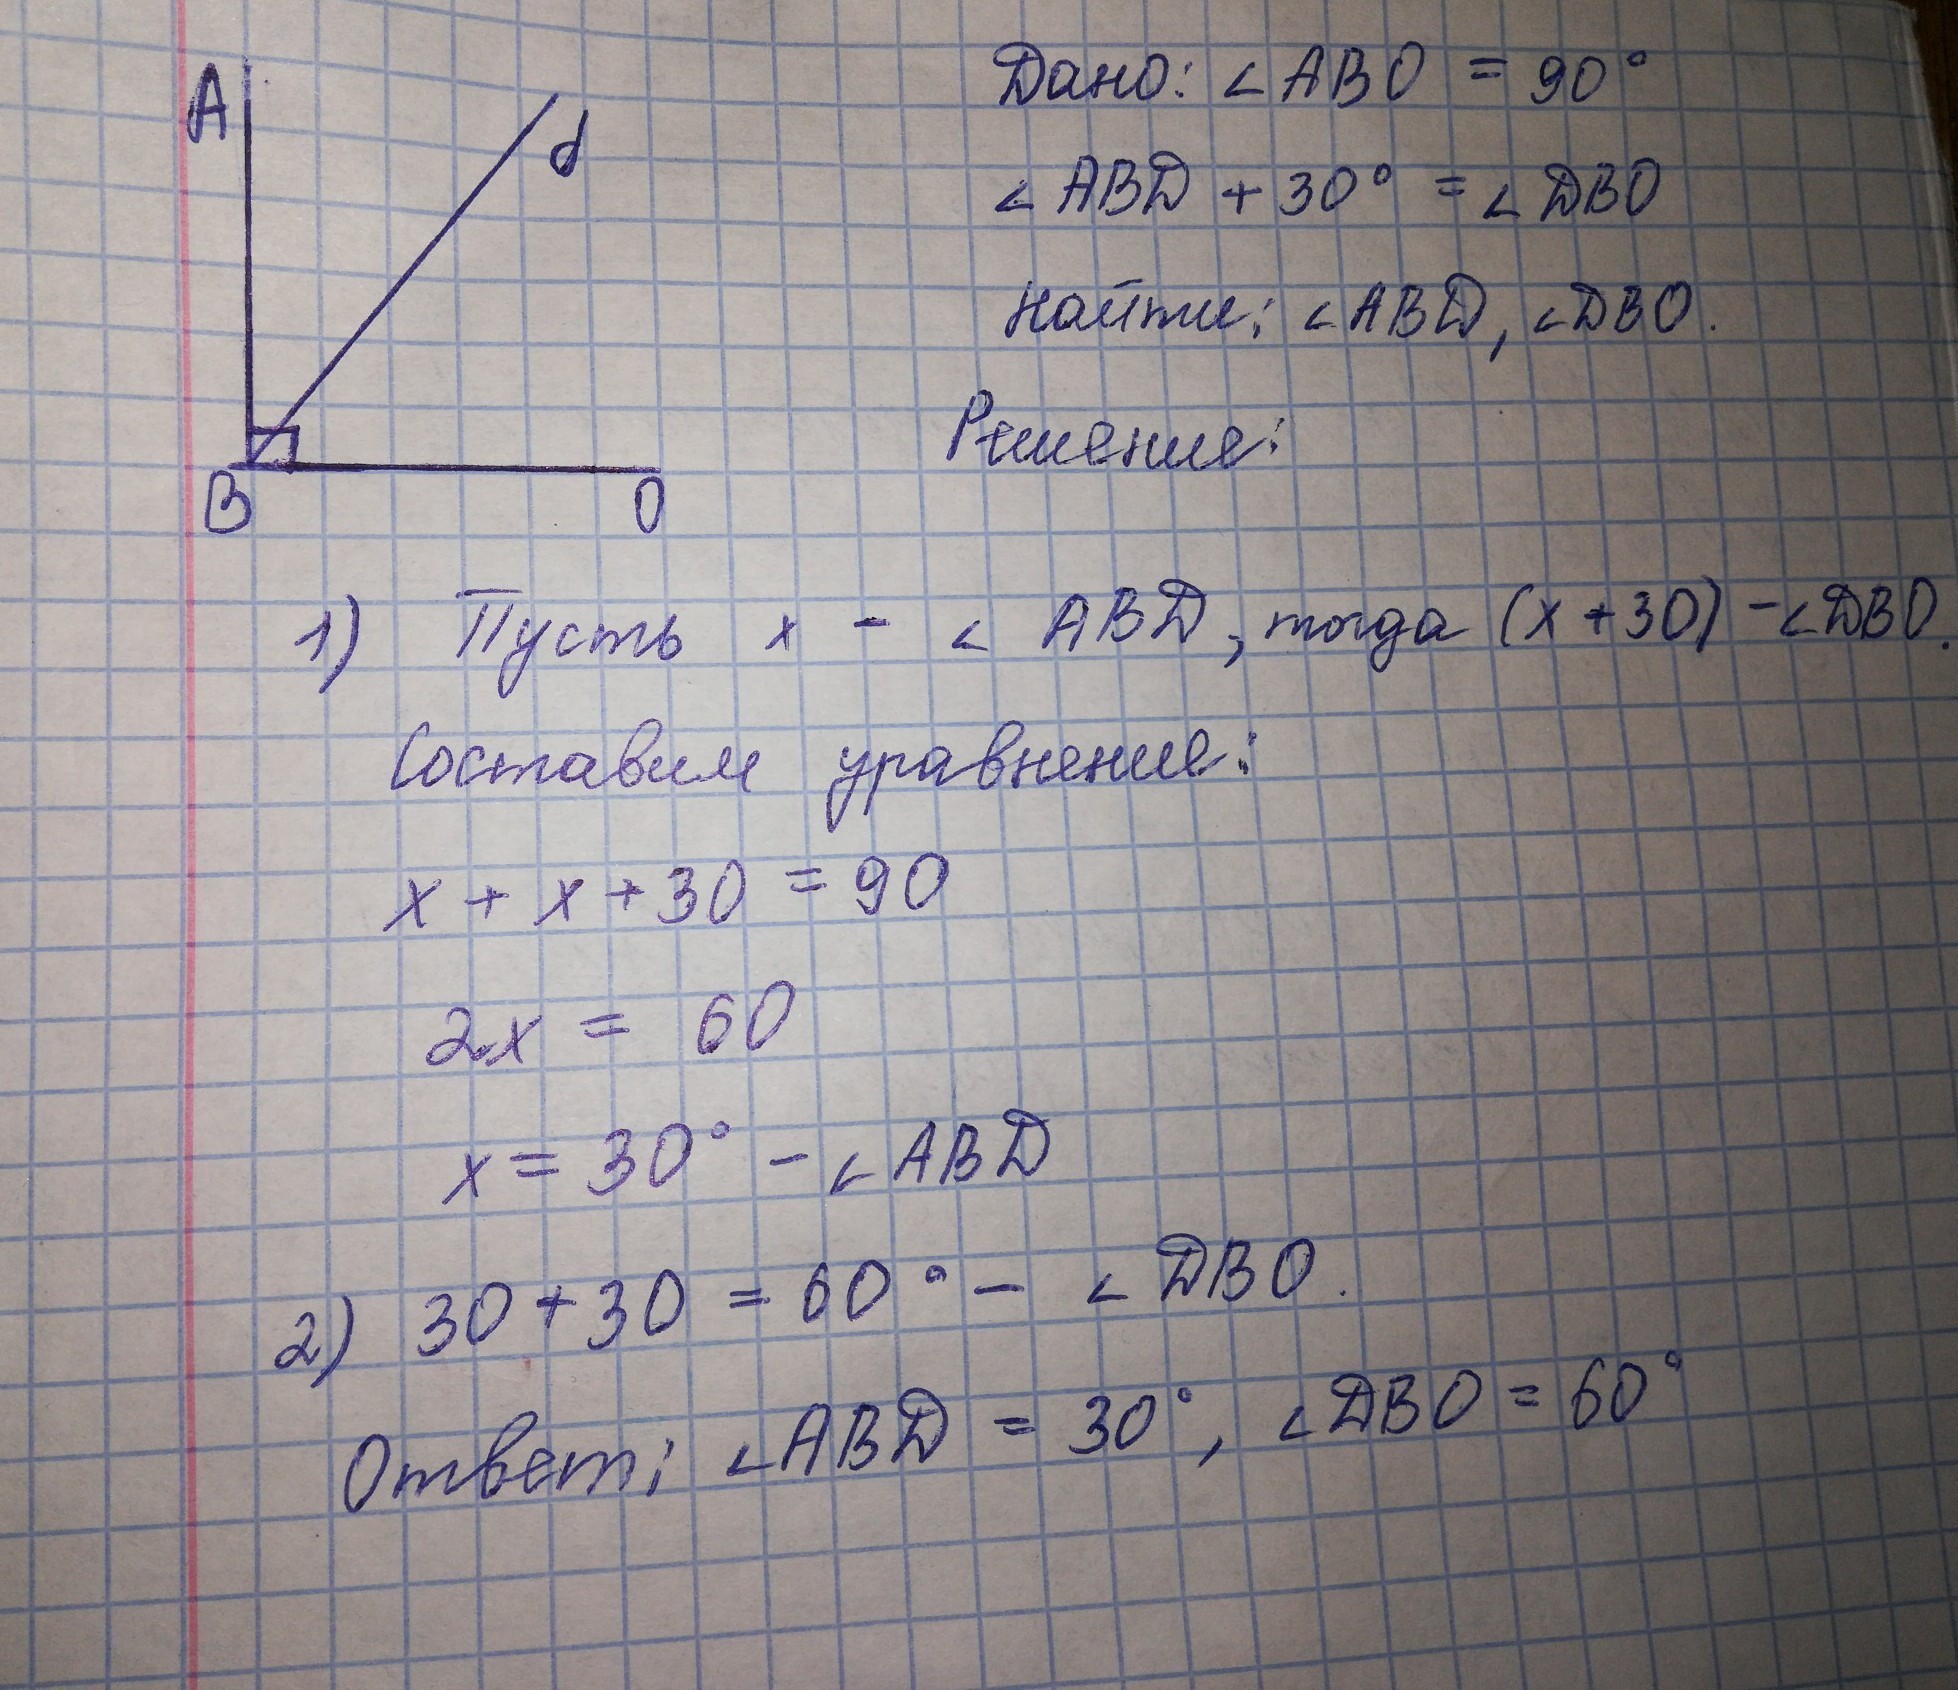 A
d
B
O
Дано: ∠ABO = 90°
∠ABD + 30° = ∠DBO
Найти: ∠ABD, ∠DBO.
Решение:
1) Пусть x - ∠ ABD, тогда (x + 30) - ∠DBO.
Составим уравнение:
x + x + 30 = 90
2x = 60
x = 30° - ∠ABD
2) 30 + 30 = 60° - ∠DBO.
Ответ: ∠ABD = 30°, ∠DBO = 60°